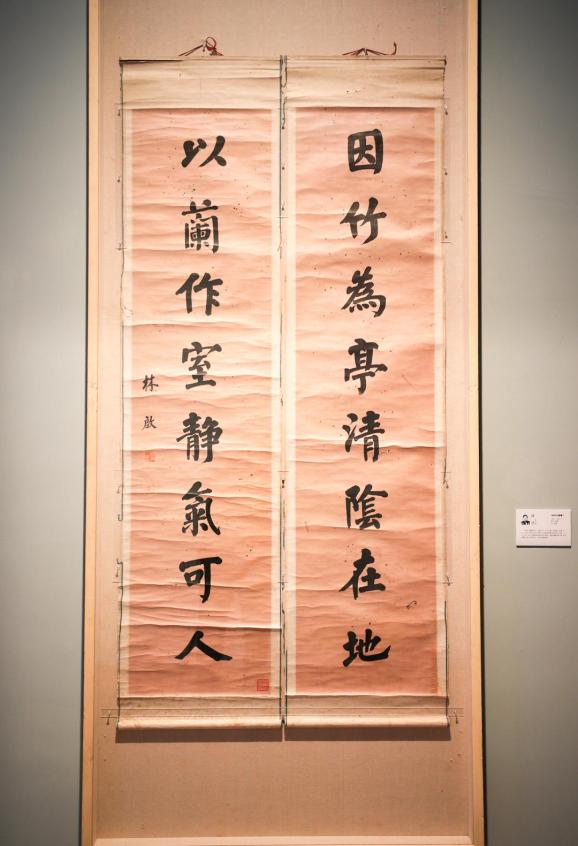 因竹為亭清陰在地
以蘭作室静氣可人
林啟